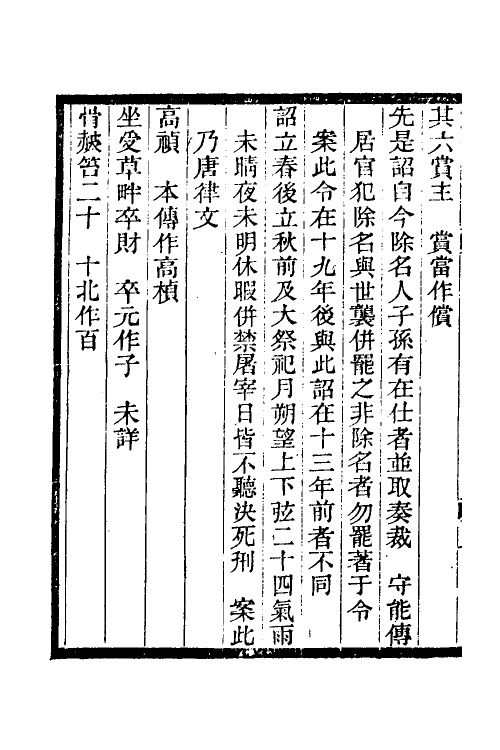 其六賞主　賞當作償
先是詔自今除名人子孫有在仕者並取奏裁　守能傳
居官犯除名與世襲併罷之非除名者勿罷著于令
案此令在十九年後與此詔在十三年前者不同
詔立春後立秋前及大祭祀月朔望上下弦二十四氣雨
未晴夜未明休暇併禁屠宰日皆不聽決死刑　案此
乃唐律文
高禎　本傳作高楨
坐受草畔卒財　卒元作子　未詳
惰赦笞二十　十北作百